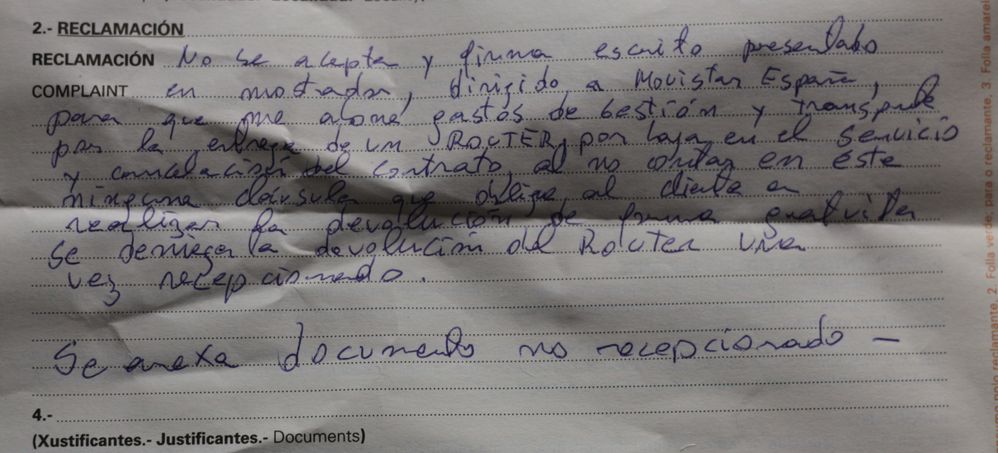 2.- RECLAMACIÓN
RECLAMACIÓN No se acepta y firma escrito presentado
COMPLAINT en mostrador, dirigido a Movistar España,
para que me abone gastos de Gestión y transporte
por la entrega de un ROUTER, por baja en el servicio
y cancelación del contrato al no constar en este
ninguna claúsula que obligue al cliente a
realizar la devolución de forma gratuita
se deniega la devolución del Router una
vez recepcionado.
Se anexa documento no recepcionado —
4.-
(Xustificantes.- Justificantes.- Documents)
reclamante, 2 Folla verde, para o reclamante, 3 Folla amarel